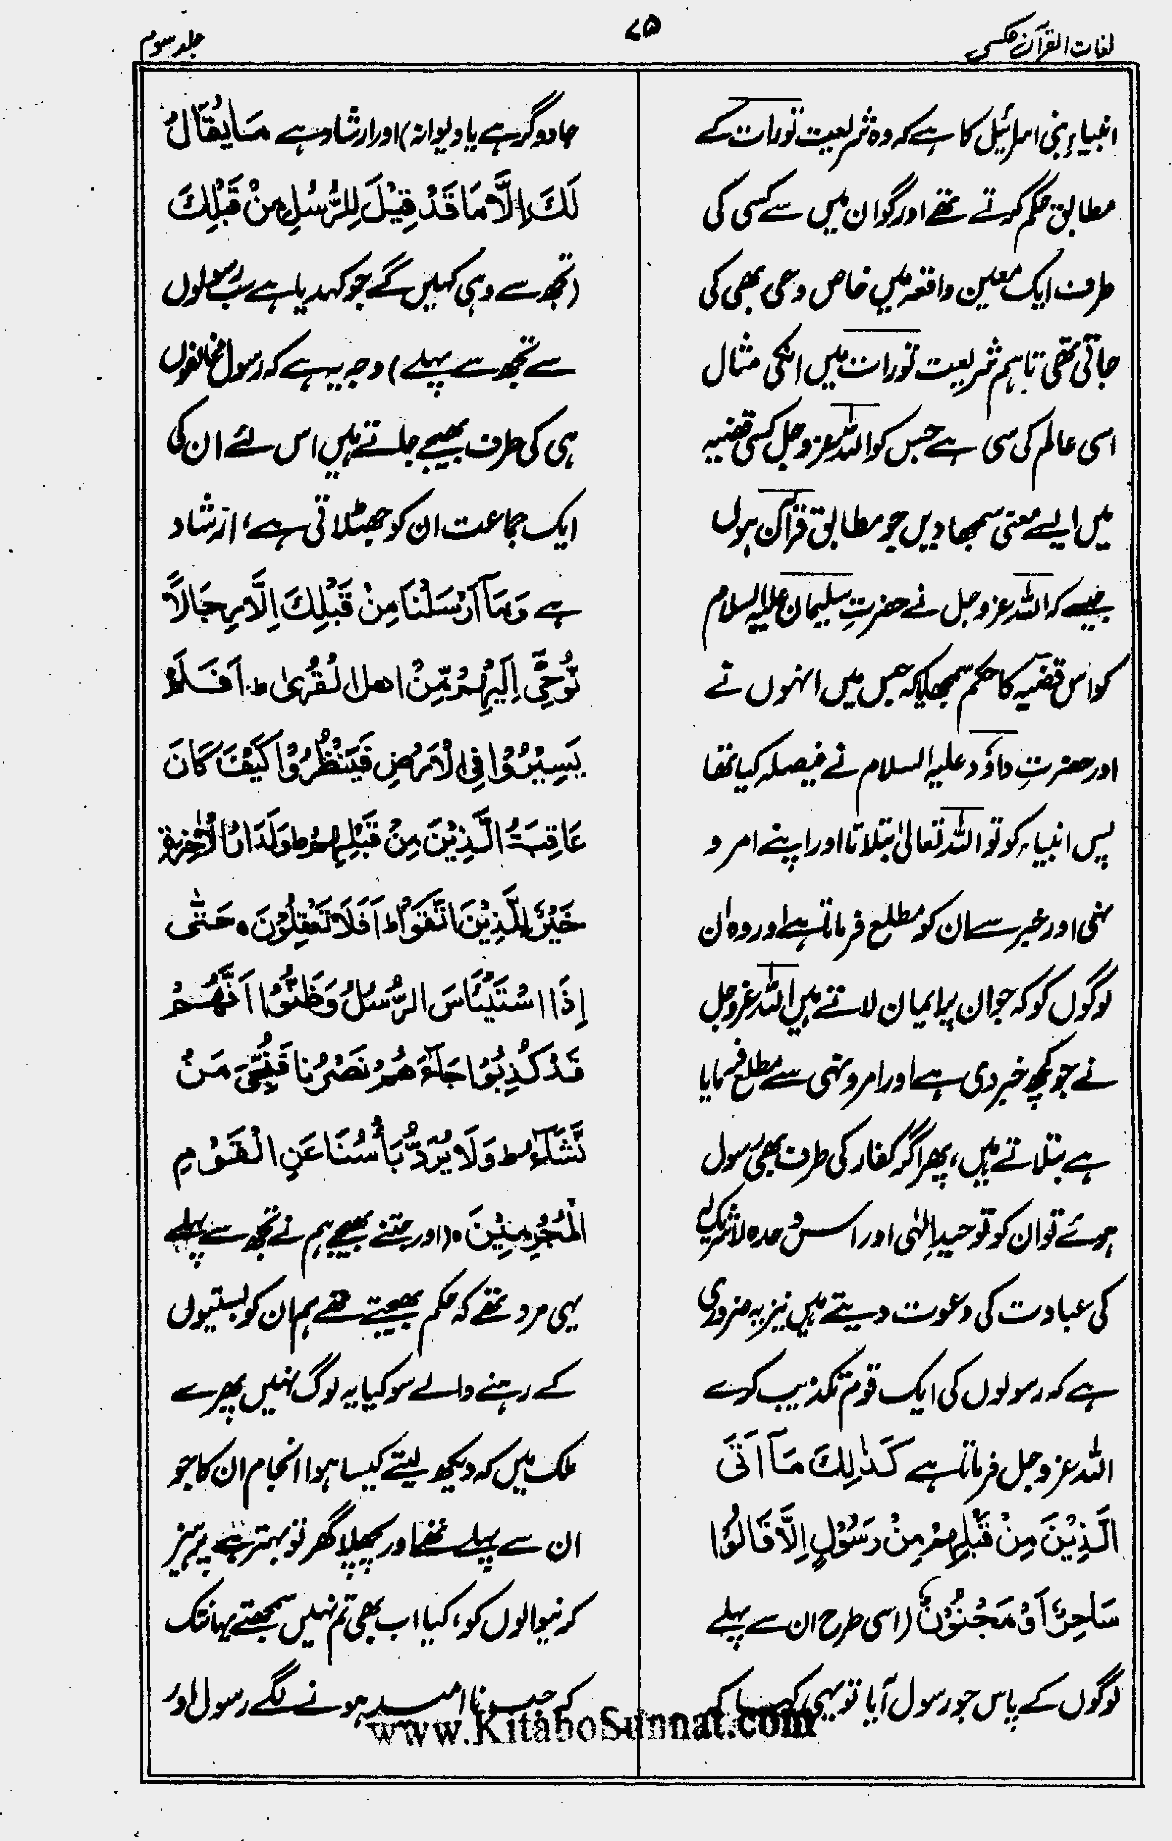 لغات القرآن عکسی
۷۵
جلد سوم
انبیاءِ بنی اسرائیل کا ہے کہ وہ شریعت تورات کے
مطابق حکم کرتے تھے اور گو ان میں سے کسی کی
طرف ایک معین واقعہ میں خاص وحی بھی کی
جاتی تھی تاہم شریعت تورات میں انکی مثال
اسی عالم کی سی ہے جس کو اللہ عزوجل کسی قضیہ
میں ایسے معنی سمجھا دیں جو مطابق قرآن ہوں
جیسے کہ اللہ عزوجل نے حضرتِ سلیمان علیہ السلام
کو اس قضیہ کا حکم سمجھایا کہ جس میں انہوں نے
اور حضرتِ داؤد علیہ السلام نے فیصلہ کیا تھا
پس انبیاء کو تو اللہ تعالیٰ بتلاتا اور اپنے امر و
نہی اور خبر سے ان کو مطلع فرماتا ہے اور وہ ان
لوگوں کو کہ جو ان پر ایمان لاتے ہیں اللہ عزوجل
نے جو کچھ خبر دی ہے اور امر و نہی سے مطلع فرمایا
ہے بتلاتے ہیں، پھر اگر کفار کی طرف بھی رسول
ہوئے تو ان کو توحیدِ الٰہی اور اس وحدہ لاشریک لہ
کی عبادت کی دعوت دیتے ہیں نیز یہ ضروری
ہے کہ رسولوں کی ایک قوم تکذیب کرے
اللہ عزوجل فرماتا ہے كَذٰلِكَ مَآ اَتَى
الَّذِيْنَ مِنْ قَبْلِهِمْ مِنْ رَسُوْلٍ اِلَّا قَالُوْا
سَاحِرٌ اَوْ مَجْنُوْنٌ (اسی طرح ان سے پہلے
لوگوں کے پاس جو رسول آیا تو یہی کہا کہ
جادوگر ہے یا دیوانہ) اور ارشاد ہے مَا يُقَالُ
لَكَ اِلَّا مَا قَدْ قِيْلَ لِلرُّسُلِ مِنْ قَبْلِكَ
(تجھ سے وہی کہیں گے جو کہدیا ہے سب رسولوں
سے تجھ سے پہلے) وجہ یہ ہے کہ رسول مخالفوں
ہی کی طرف بھیجے جاتے ہیں اس لئے ان کی
ایک جماعت ان کو جھٹلاتی ہے، ارشاد
ہے وَمَآ اَرْسَلْنَا مِنْ قَبْلِكَ اِلَّا رِجَالًا
نُّوْحِيْٓ اِلَيْهِمْ مِّنْ اَهْلِ الْقُرٰى ط اَفَلَمْ
يَسِيْرُوْا فِي الْاَرْضِ فَيَنْظُرُوْا كَيْفَ كَانَ
عَاقِبَةُ الَّذِيْنَ مِنْ قَبْلِهِمْ ط وَلَدَارُ الْاٰخِرَةِ
خَيْرٌ لِلَّذِيْنَ اتَّقَوْا ط اَفَلَا تَعْقِلُوْنَ ۰ حَتّٰى
اِذَا اسْتَيْئَاسَ الرُّسُلُ وَظَنُّوْا اَنَّهُمْ
قَدْ كُذِبُوْا جَآءَهُمْ نَصْرُنَا فَنُجِّيَ مَنْ
نَّشَآءُ ط وَلَا يُرَدُّ بَاْسُنَا عَنِ الْقَوْمِ
الْمُجْرِمِيْنَ ۰ (اور جتنے بھیجے ہم نے تجھ سے پہلے
یہی مرد تھے کہ حکم بھیجتے تھے ہم ان کو بستیوں
کے رہنے والے سو کیا یہ لوگ نہیں پھرے
ملک میں کہ دیکھ لیتے کیسا ہوا انجام ان کا جو
ان سے پہلے تھے اور پچھلا گھر تو بہتر ہے پرہیز
کرنیوالوں کو، کیا اب بھی تم نہیں سمجھتے یہانتک
کہ جب نا امید ہونے لگے رسول اور
www.KitaboSunnat.com